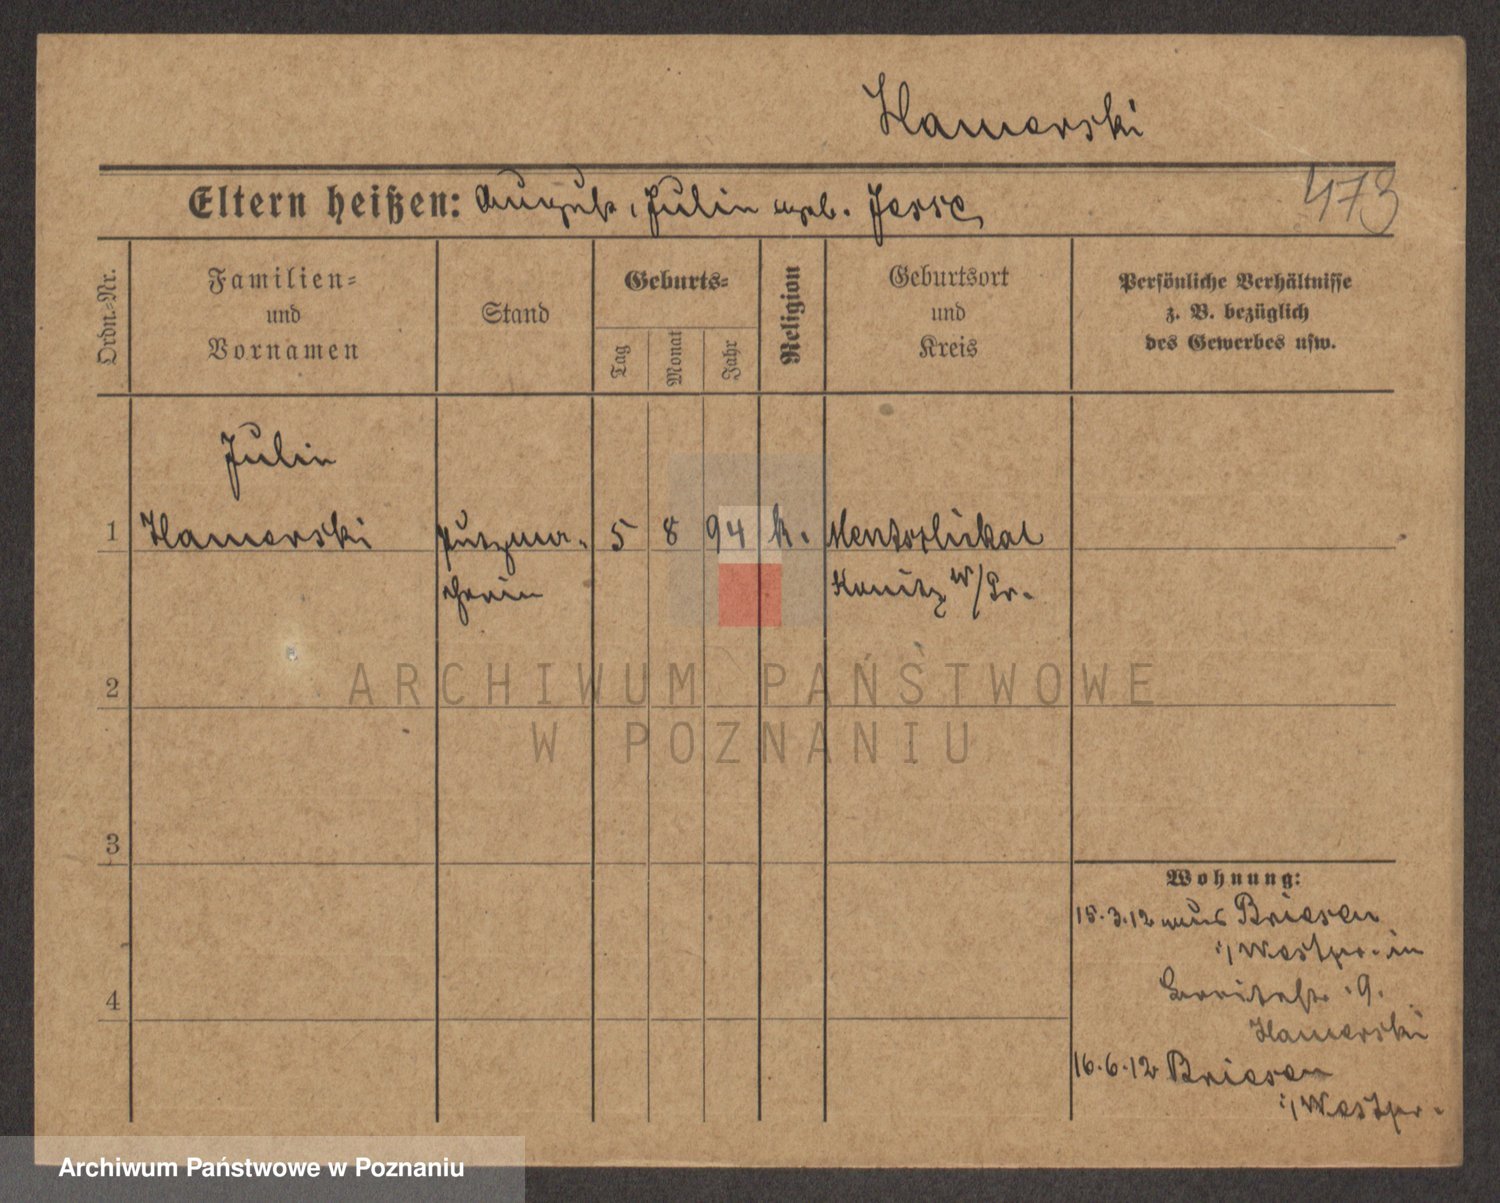 Hamerski
Eltern heißen: August, Julia geb. Jesse
473
Ordn.-Nr.
Familien-
und
Vornamen
Stand
Geburts-
Tag
Monat
Jahr
Religion
Geburtsort
und
Kreis
Persönliche Verhältnisse
z. B. bezüglich
des Gewerbes usw.
Julia
1 Hamerski Putzma- 5 8 94 k.
cherin Konitz W/Pr.
2
3
4
Wohnung:
15.3.12 aus Briesen
i/Westpr. in
9.
Hamerski
16.6.12 Briesen
i/Westpr.
ARCHIWUM PAŃSTWOWE
W POZNANIU
Archiwum Państwowe w Poznaniu